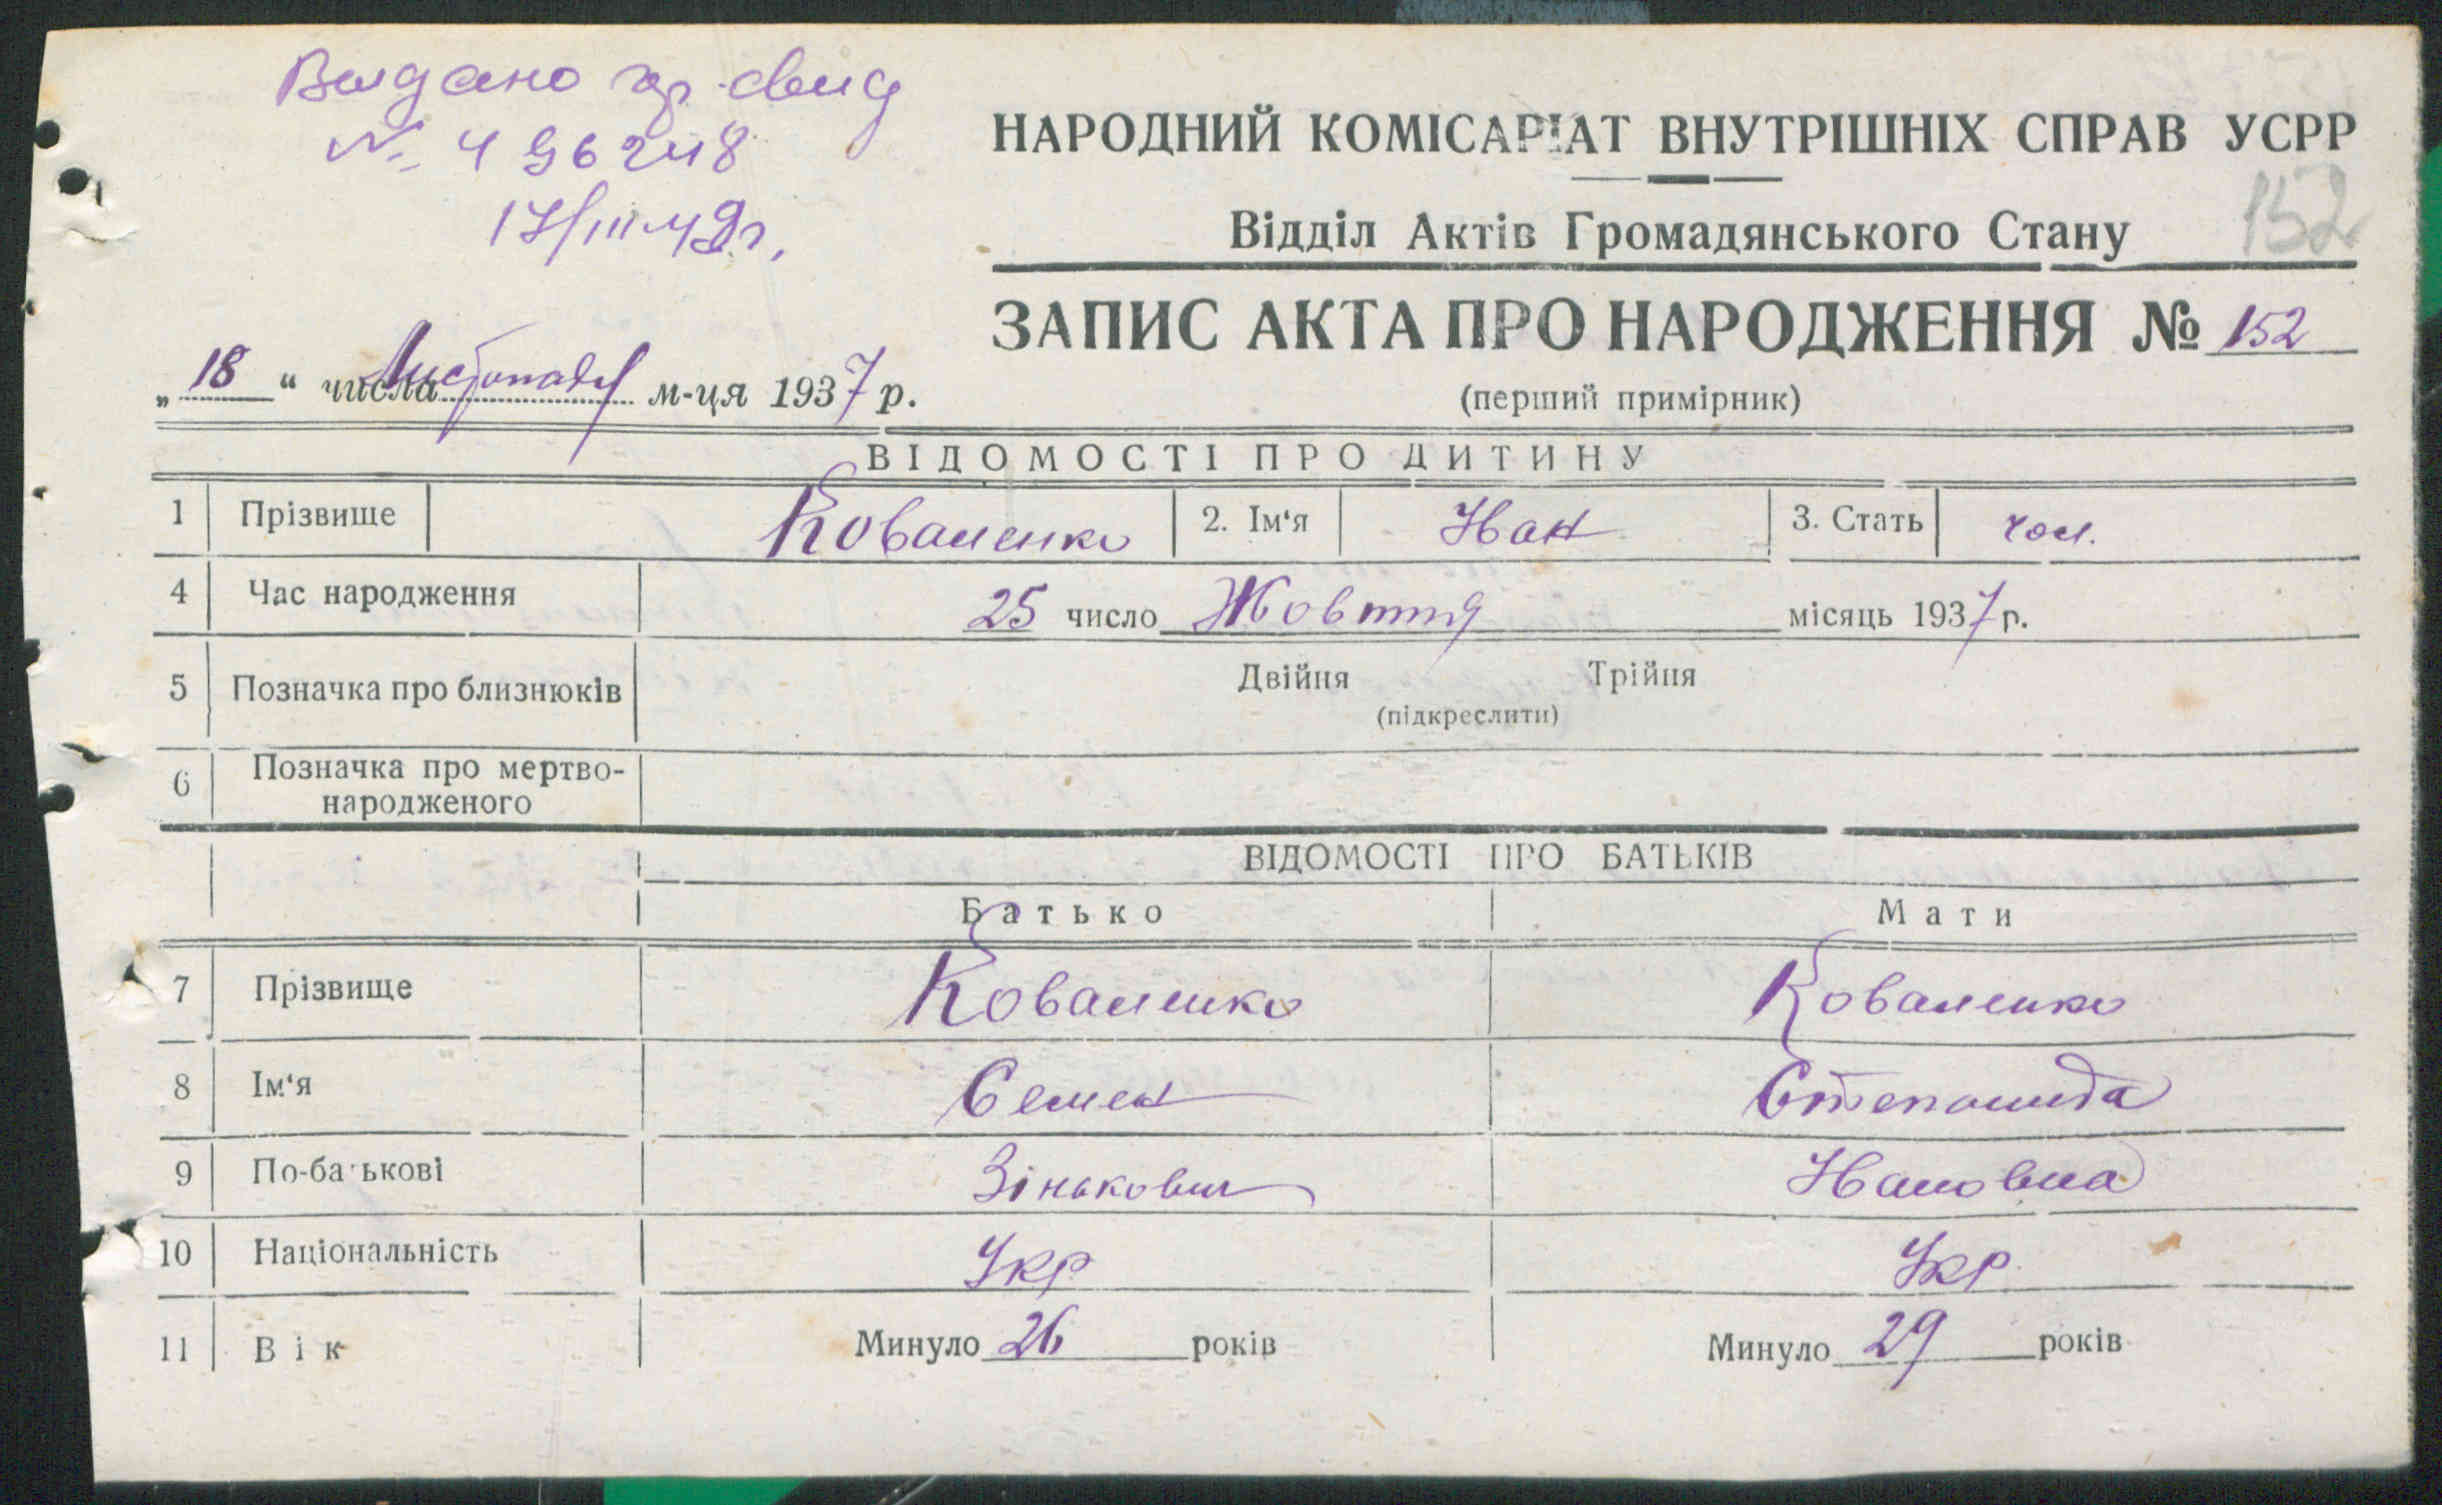 Видано гр. свид
№ 496248
17/III-49г.
НАРОДНИЙ КОМІСАРІАТ ВНУТРІШНІХ СПРАВ УСРР
152
Відділ Актів Громадянського Стану
ЗАПИС АКТА ПРО НАРОДЖЕННЯ № 152
„ 18 “ числа Листопада м-ця 1937 р.
(перший примірник)
ВІДОМОСТІ ПРО ДИТИНУ
1 Прізвище Коваленко 2. Ім‘я Іван 3. Стать чол.
4 Час народження 25 число Жовтня місяць 1937 р.
5 Позначка про близнюків Двійня Трійня
(підкреслити)
6 Позначка про мертво-
народженого
ВІДОМОСТІ ПРО БАТЬКІВ
Батько Мати
7 Прізвище Коваленко Коваленко
8 Ім‘я Семен Степанида
9 По-батькові Зінькович Івановна
10 Національність Укр Укр.
11 Вік Минуло 26 років Минуло 29 років